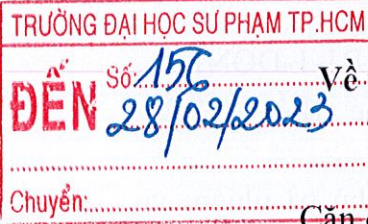 TRƯỜNG ĐẠI HỌC SƯ PHẠM TP.HCM
ĐẾN
Số: 156
Về
28/02/2023
Chuyển:
Căn